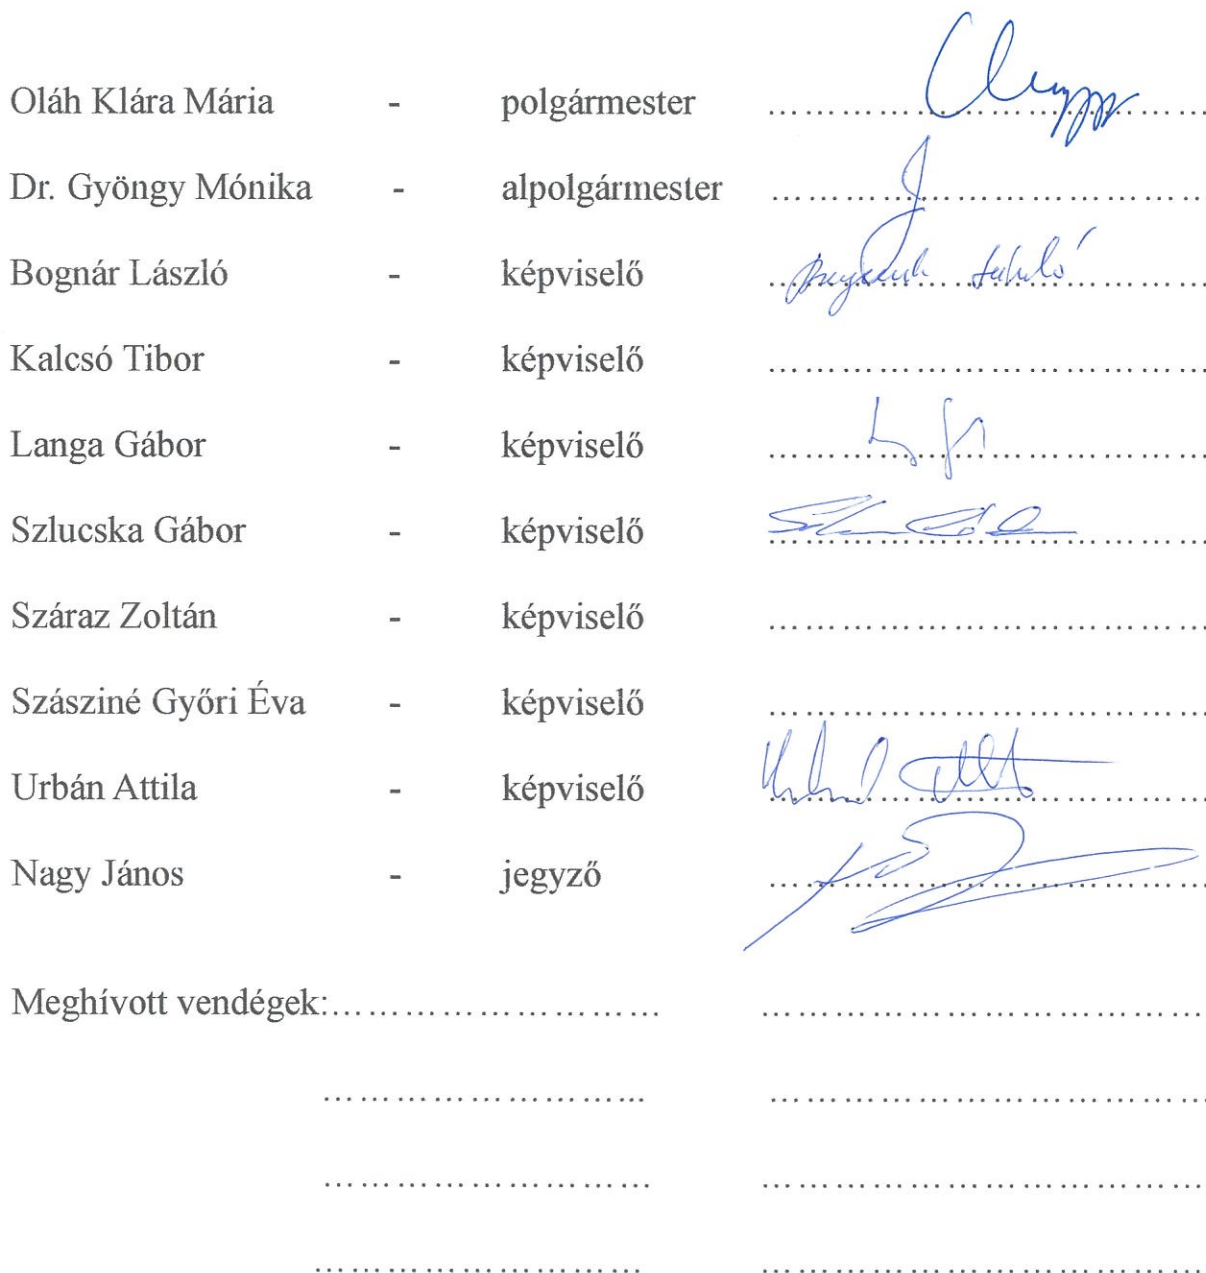 Oláh Klára Mária - polgármester ........................
Dr. Gyöngy Mónika - alpolgármester ........................
Bognár László - képviselő ........................
Kalcsó Tibor - képviselő ........................
Langa Gábor - képviselő ........................
Szlucska Gábor - képviselő ........................
Száraz Zoltán - képviselő ........................
Szásziné Győri Éva - képviselő ........................
Urbán Attila - képviselő ........................
Nagy János - jegyző ........................
Meghívott vendégek:........................ ........................